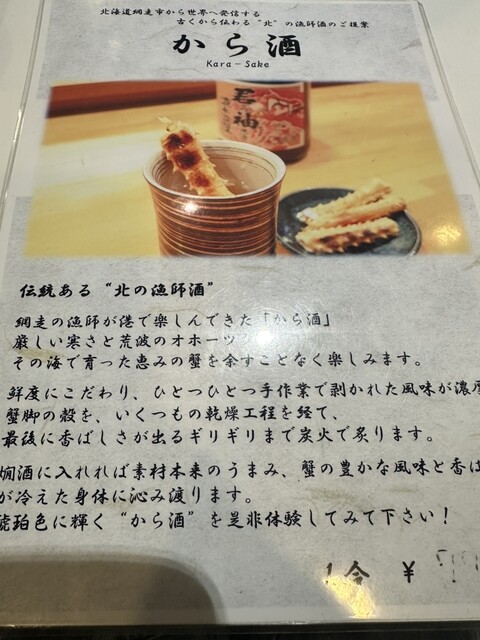 北海道網走市から世界へ発信する
古くから伝わる“北”の漁師酒のご提案
から酒
Kara-Sake
君
袖
伝統ある“北の漁師酒”
網走の漁師が港で楽しんできた「から酒」
厳しい寒さと荒波のオホーツ
その海で育った恵みの蟹を余すことなく楽しみます。
鮮度にこだわり、ひとつひとつ手作業で剥かれた風味が濃厚
蟹脚の殻を、いくつもの乾燥工程を経て、
最後に香ばしさが出るギリギリまで炭火で炙ります。
燗酒に入れれば素材本来のうまみ、蟹の豊かな風味と香ば
が冷えた身体に沁み渡ります。
琥珀色に輝く“から酒”を是非体験してみて下さい！
1合 ¥